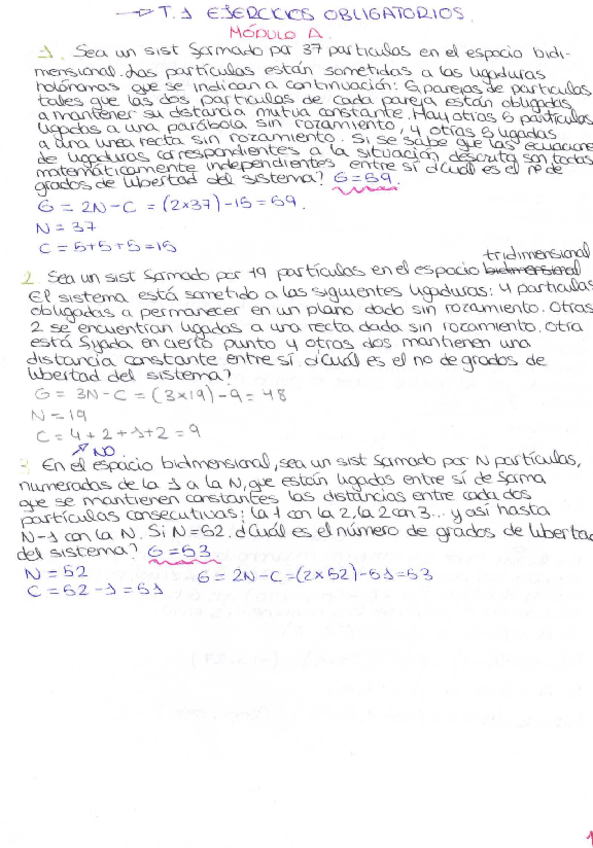 → T. 1 EJERCICIOS OBLIGATORIOS.
MÓDULO A.
1. Sea un sist formado por 37 particulas en el espacio bidi-
mensional. Las partículas están sometidas a las ligaduras
holónomas que se indican a continuación: 5 parejas de particulas
tales que las dos particulas de cada pareja están obligadas
a mantener su distancia mutua constante. Hay otras 5 partículas
ligadas a una parábola sin rozamiento, y otras 5 ligadas
a una linea recta sin rozamiento. Si se sabe que las ecuaciones
de ligaduras correspondientes a la situación descrita son todas
matemáticamente independientes entre sí ¿Cuál es el nº de
grados de libertad del sistema? G=59.
G = 2N-C = (2x37)-15=59.
N=37
C=5+5+5=15
tridimensional
2. Sea un sist formado por 19 partículas en el espacio bidimensional
El sistema está sometido a las siguientes ligaduras: 4 particulas
obligadas a permanecer en un plano dado sin rozamiento. Otras
2 se encuentran ligadas a una recta dada sin rozamiento. Otra
está fijada en cierto punto y otros dos mantienen una
distancia constante entre sí. ¿Cuál es el no de grados de
libertad del sistema?
G = 3N-C = (3x19)-9=48
N=19
C = 4+2+1+2=9
NO.
3. En el espacio bidimensional, sea un sist formado por N partículas,
numeradas de la 1 a la N, que están ligados entre sí de forma
que se mantienen constantes las distancias entre cada dos
partículas consecutivas; la 1 con la 2, la 2 con 3... y así hasta
N-1 con la N. Si N=52. ¿Cuál es el número de grados de libertad
del sistema? G=53
N=52 G=2N-C=(2x52)-51=53
C=52-1=51
1